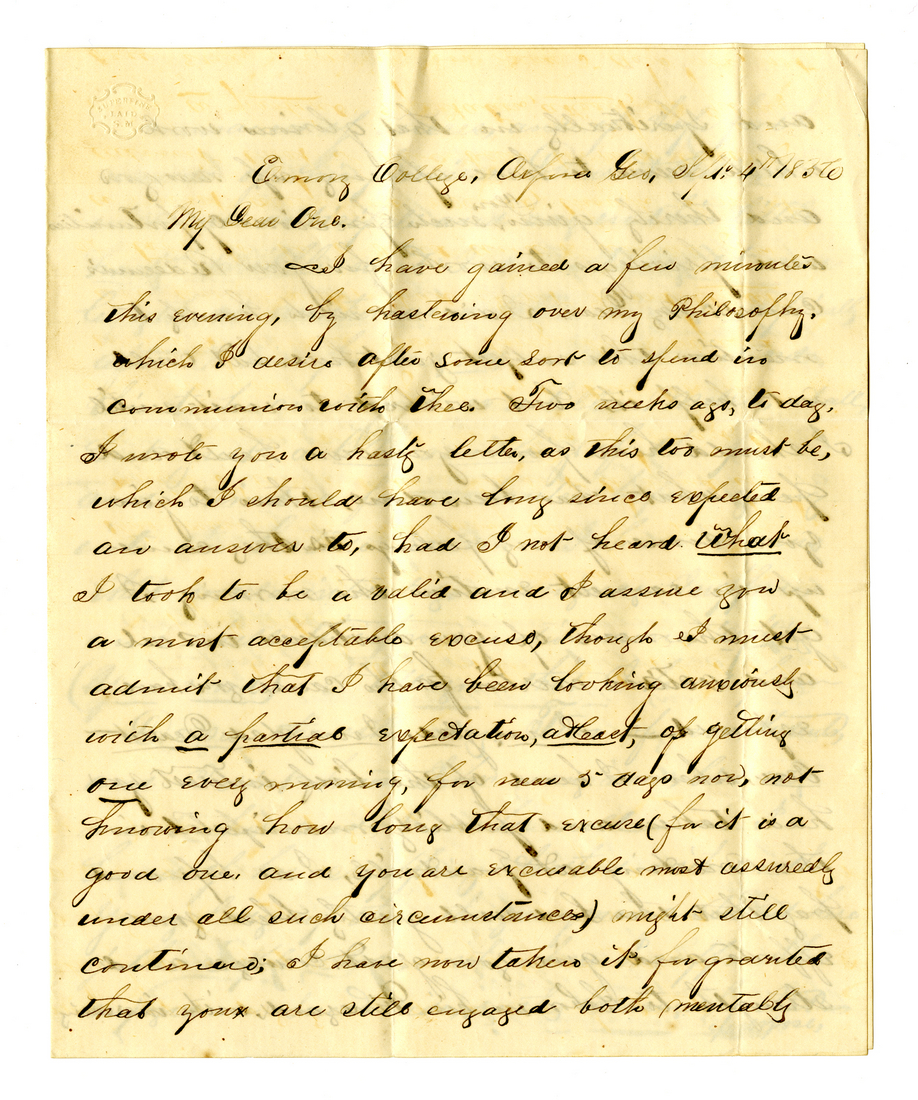 Emory College, Oxford Geo, Sept. 4th 1856
My Dear One.
I have gained a few minutes
this evening, by hastening over my Philosophy.
which I desire after some sort to spend in
communion with thee. Two weeks ago, to day,
I wrote you a hasty letter, as this too must be,
which I should have long since expected
an answer to, had I not heard. What
I took to be a valid and I assure you
a most acceptable excuse, though I must
admit that I have been looking anxiously
with a partial expectation, atleast, of getting
one every morning, for near 5 days now, not
knowing how long that excuse (for it is a
good one, and you are excusable most assuredly
under all such circumstances) might still
continue; I have now taken it for granted
that you are still engaged both mentally